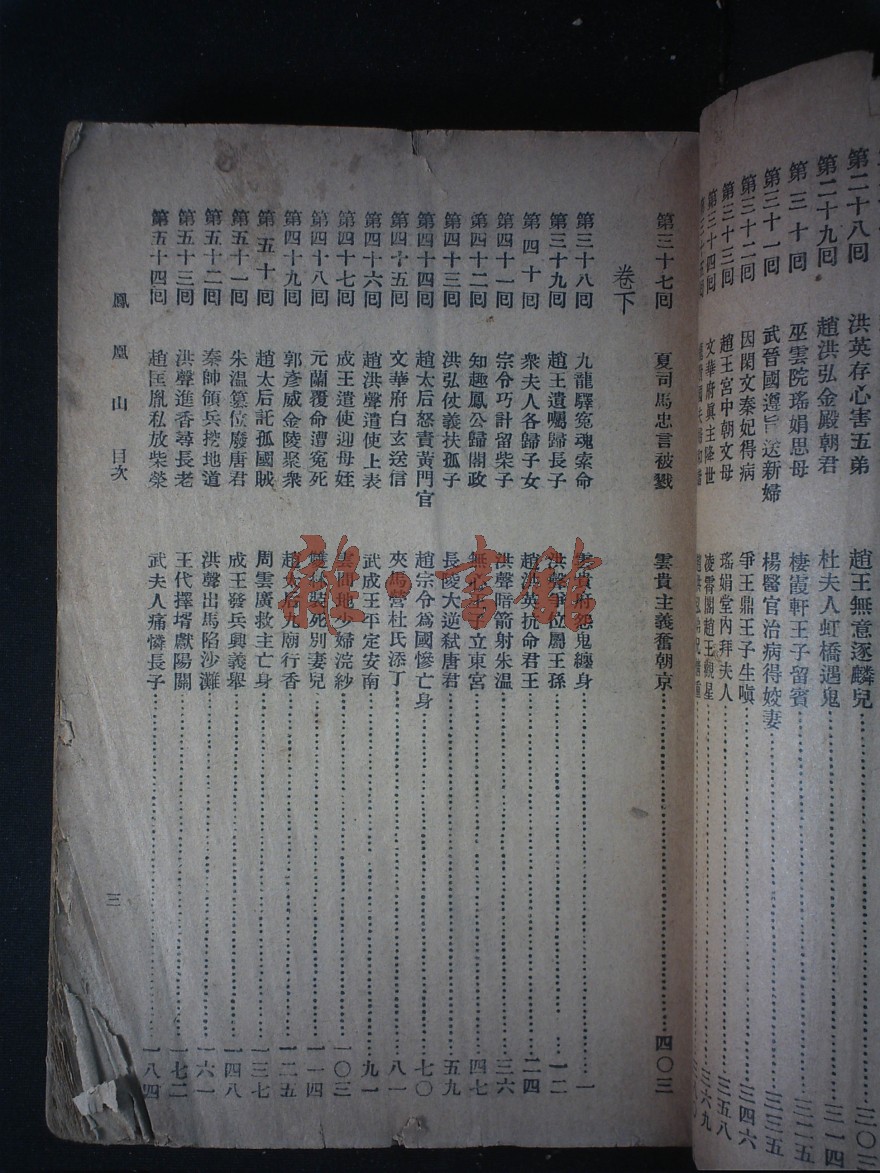 第二十八回 洪英存心害五弟 趙王無意逐麟兒 三〇三
第二十九回 趙洪弘金殿朝君 杜夫人虹橋遇鬼 三一四
第三十回 巫雲院瑤娟思母 棲霞軒王子留賓 三二五
第三十一回 武晉國遵旨送新婦 楊醫官治病得姣妻 三三五
第三十二回 因閑文秦妃得病 爭王鼎王子生嗔 三四六
第三十三回 趙王宮中朝文母 瑤娟堂內拜夫人 三五八
第三十四回 文華府眞主降世 凌霄閣趙王觀星 三六九
第三十七回 夏司馬忠言被戮 雲貴主義奮朝京 四〇三
卷下
第三十八回 九龍驛冤魂索命 雲貴府怨鬼纏身 一
第三十九回 趙王遺囑歸長子 洪聲爭位屬王孫 一二
第四十回 衆夫人各歸子女 趙洪英抗命君王 二四
第四十一回 宗令巧計留柴子 洪聲暗箭射朱溫 三六
第四十二回 知趣鳳公歸閣政 無心王子立東宮 四七
第四十三回 洪弘仗義扶孤子 長陵大逆弒唐君 五九
第四十四回 趙太后怒責黃門官 趙宗令爲國慘亡身 七〇
第四十五回 文華府白玄送信 夾馬營杜氏添丁 八一
第四十六回 趙洪聲遣使上表 武成王平定安南 九一
第四十七回 成王遣使迎母姪 雲間地少婦浣紗 一〇三
第四十八回 元蘭覆命遭冤死 裝死別妻兒 一一四
第四十九回 郭彥威金陵聚衆 趙太后九廟行香 一二五
第五十回 趙太后託孤國賊 周雲廣救主亡身 一三七
第五十一回 朱溫篡位廢唐君 成王發兵興義舉 一四八
第五十二回 秦帥領兵挖地道 洪聲出馬陷沙灘 一六一
第五十三回 洪聲進香尋長老 王代擇壻獻陽關 一七二
第五十四回 趙匡胤私放柴榮 武夫人痛憐長子 一八四
鳳凰山 目次
三
雜·書館